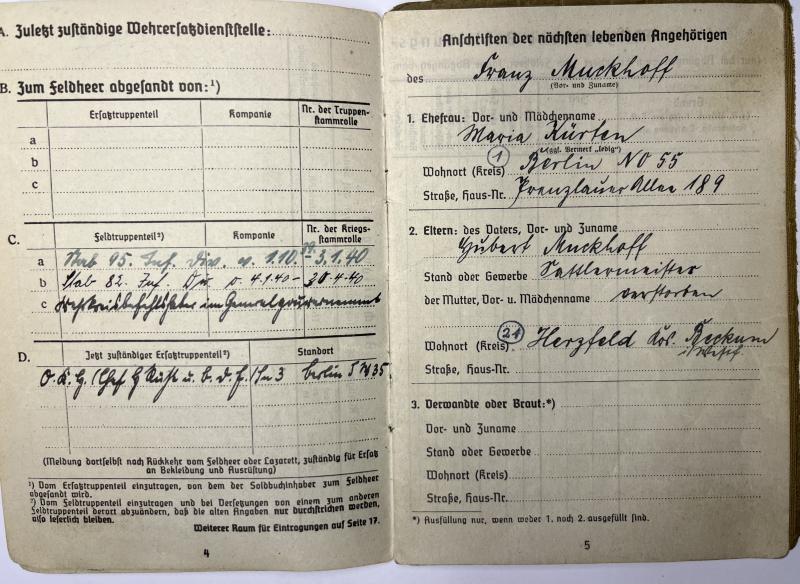 A. Zuletzt zuständige Wehrersatzdienststelle:
B. Zum Feldheer abgesandt von:¹)
Ersatztruppenteil Kompanie Nr. der Truppen-
stammrolle
a
b
c
C. Feldtruppenteil²) Kompanie Nr. der Kriegs-
stammrolle
a Stab 95. Inf. Div. v. 1.10.39-3.1.40
b Stab 82. Inf. Div v. 4.1.40-30.4.40
c Wehrkreisbefehlshaber im Generalgouvernement
D. Jetzt zuständiger Ersatztruppenteil²) Standort
O.K.H. (Chef H Rüst u. b. d. E.) In 3 Berlin S W 35
(Meldung dortselbst nach Rückkehr vom Feldheer oder Lazarett, zuständig für Ersatz
an Bekleidung und Ausrüstung)
¹) Vom Ersatztruppenteil einzutragen, von dem der Soldbuchinhaber zum Feldheer
abgesandt wird.
²) Vom Feldtruppenteil einzutragen und bei Versetzungen von einem zum anderen
Feldtruppenteil derart abzuändern, daß die alten Angaben nur durchstrichen werden,
also leserlich bleiben.
Weiterer Raum für Eintragungen auf Seite 17.
4
Anschriften der nächsten lebenden Angehörigen
des Franz Muckhoff
(Vor- und Zuname)
1. Ehefrau: Vor- und Mädchenname
Maria Kürten
(ggf. Vermerk „ledig")
Wohnort (Kreis) 1 Berlin NO 55
Straße, Haus-Nr. Prenzlauer Allee 189
2. Eltern: des Vaters, Vor- und Zuname
Hubert Muckhoff
Stand oder Gewerbe Sattlermeister
der Mutter, Vor- u. Mädchenname verstorben
Wohnort (Kreis) 21 Herzfeld Krs. Beckum
i/Westf.
Straße, Haus-Nr.
3. Verwandte oder Braut:*)
Vor- und Zuname
Stand oder Gewerbe
Wohnort (Kreis)
Straße, Haus-Nr.
*) Ausfüllung nur, wenn weder 1. noch 2. ausgefüllt sind.
5